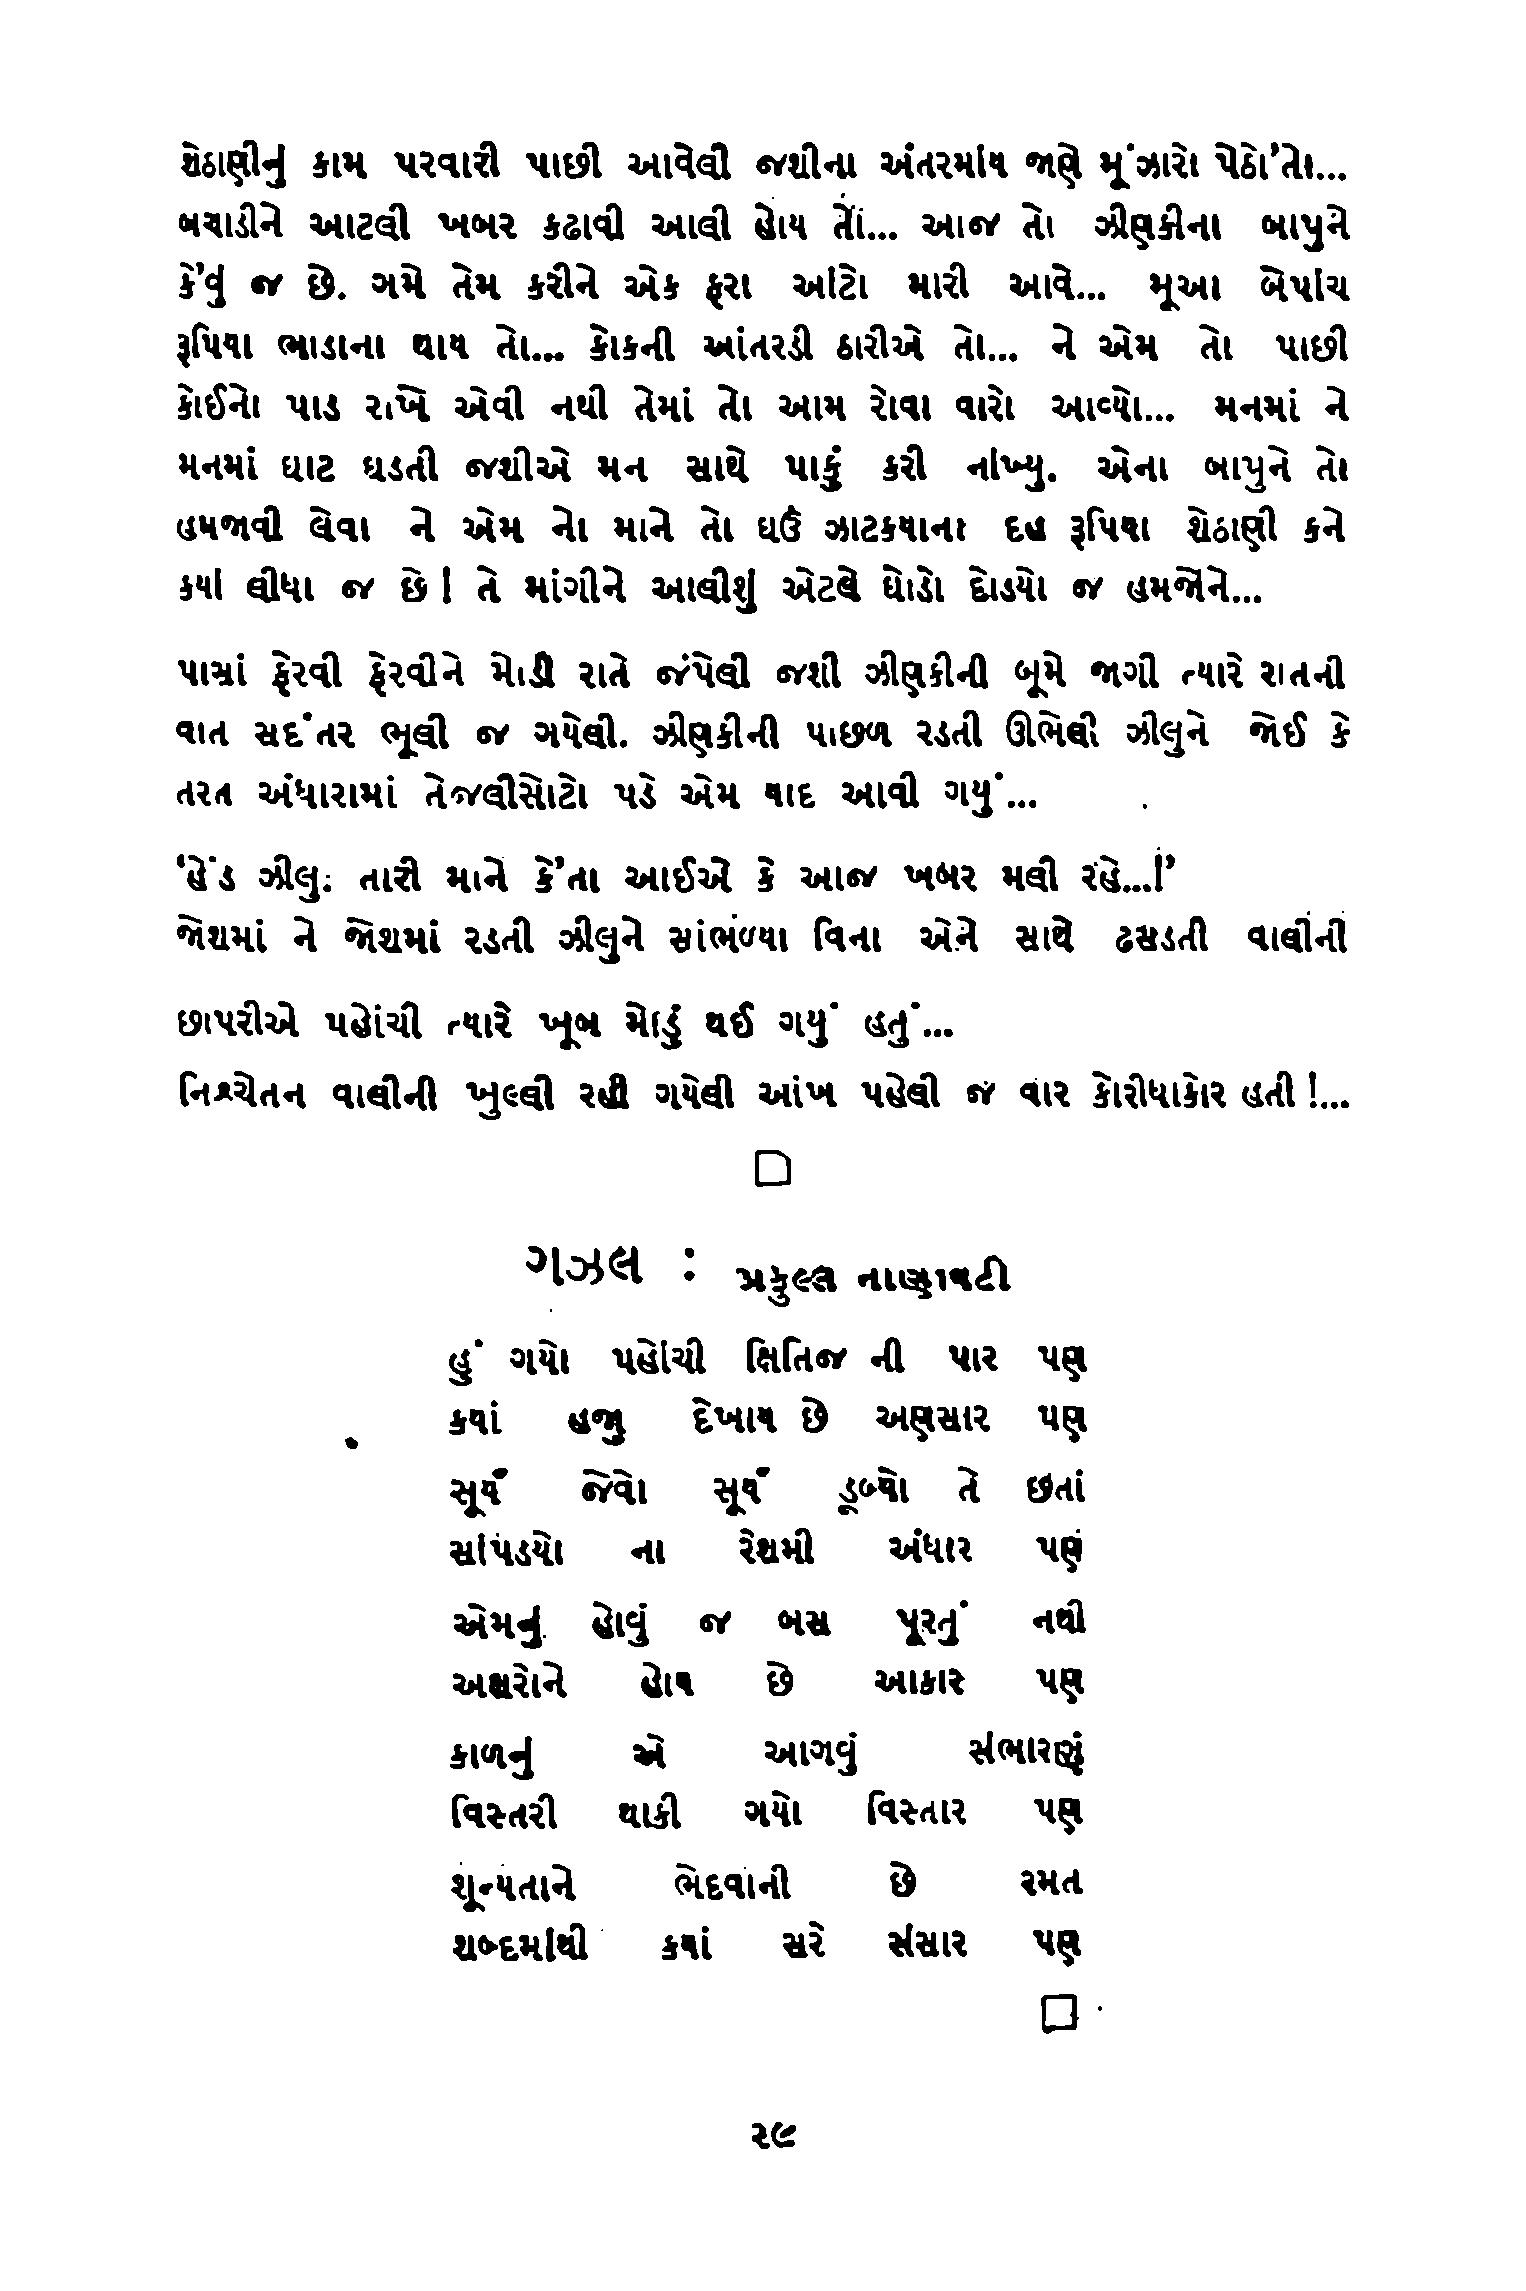 શેઠાણીનું કામ પરવારી પાછી આવેલી જશીના અંતરમાંય જાણે મૂંઝારો પેઠો'તો...
બચાડીને આટલી ખબર કઢાવી આલી હોય તો... આજ તો ઝીણકીના બાપુને
કે'વું જ છે. ગમે તેમ કરીને એક ફરા આંટો મારી આવે... મૂઆ બેપાંચ
રૂપિયા ભાડાના થાય તો... કોકની આંતરડી ઠારીએ તો... ને એમ તો પાછી
કોઈનો પાડ રાખે એવી નથી તેમાં તો આમ રોવા વારો આવ્યો... મનમાં ને
મનમાં ઘાટ ઘડતી જશીએ મન સાથે પાકું કરી નાંખ્યુ. એના બાપુને તો
હમજાવી લેવા ને એમ નો માને તો ઘઉં ઝાટકયાના દહ રૂપિયા શેઠાણી કને
કયાં લીધા જ છે! તે માંગીને આલીશું એટલે ઘોડો દોડયો જ હમજોને...
પાસાં ફેરવી ફેરવીને મોડી રાતે જંપેલી જશી ઝીણકીની બૂમે જાગી ત્યારે રાતની
વાત સદંતર ભૂલી જ ગયેલી. ઝીણકીની પાછળ રડતી ઊભેલી ઝીલુને જોઈ કે
તરત અંધારામાં તેજલીસોટો પડે એમ યાદ આવી ગયું...
'હેંડ ઝીલુ: તારી માને કે'તા આઈએ કે આજ ખબર મલી રહે...!'
જોશમાં ને જોશમાં રડતી ઝીલુને સાંભળ્યા વિના એને સાથે ઢસડતી વાલીની
છાપરીએ પહોંચી ત્યારે ખૂબ મોડું થઈ ગયું હતું...
નિશ્ચેતન વાલીની ખુલ્લી રહી ગયેલી આંખ પહેલી જ વાર કોરીધાકોર હતી !...
ગઝલ : પ્રફુલ્લ નાણાવટી
હું ગયો પહોંચી ક્ષિતિજ ની પાર પણ
કયાં હજુ દેખાય છે અણસાર પણ
સૂર્ય જેવો સૂર્ય ડૂબ્યો તે છતાં
સાંપડયો ના રેશમી અંધાર પણ
એમનું હોવું જ બસ પૂરતું નથી
અક્ષરોને હોય છે આકાર પણ
કાળનું એ આગવું સંભારણું
વિસ્તરી થાકી ગયો વિસ્તાર પણ
શૂન્યતાને ભેદવાની છે રમત
શબ્દમાંથી કયાં સરે સંસાર પણ
૨૯